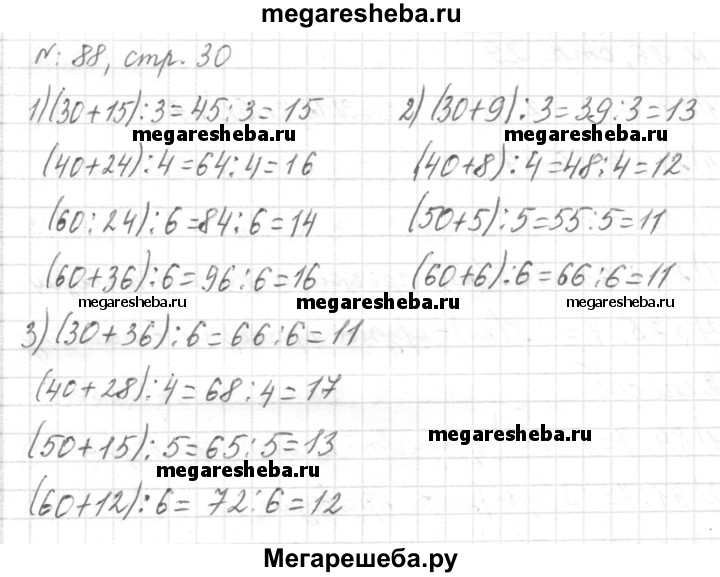 megaresheba.ru
№: 88, стр. 30
1) (30+15):3=45:3=15
2) (30+9):3=39:3=13
megaresheba.ru
megaresheba.ru
(40+24):4=64:4=16
(40+8):4=48:4=12
(60:24):6=84:6=14
(50+5):5=55:5=11
(60+36):6=96:6=16
(60+6):6=66:6=11
megaresheba.ru
megaresheba.ru
megaresheba.ru
3) (30+36):6=66:6=11
(40+28):4=68:4=17
megaresheba.ru
(50+15):5=65:5=13
megaresheba.ru
(60+12):6=72:6=12
Мегарешеба.ру